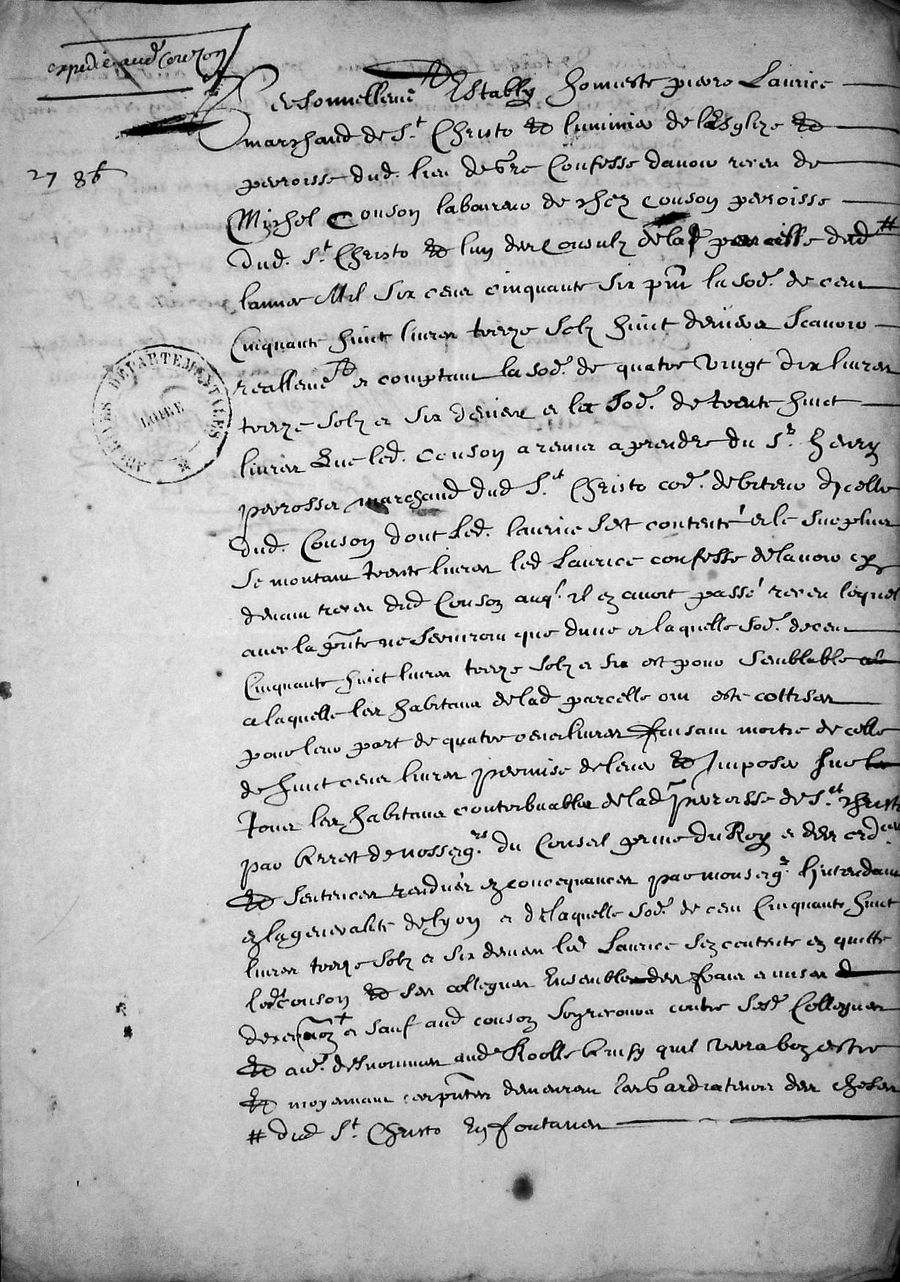 expedié aud Couzon
Personnellemt Estably honneste pierre Laurice
marchand de St Christo Et luminier de lEsglize Et
27 8b
parroisse dud. lieu de gre Confesse davoir receu de
Michel Couson laboureur de chez Couson parroisse
dud. St Christo Et lun des Consulz de la parcelle dud #
lannee Mil six cens cinquante six pnt la sode. de cent
Cinquante huict livres treize solz huict deniers Scavoir
reallemt et comptant la sode. de quatre vingt dix livres
treize solz et six deniers et la sode. de trente huict
livres que led. Couson a remis a prendre du Sr. henry
perrosser marchand dud St Christo debiteur dicelle
dud. Couson dont led. laurice sest contenté et le surplus
se montant trente livres led Laurice confesse de lavoir cy
devant receu dud Couson auql. il en avoit passé receu lequel
avec la pnte ne serviront que dune et laquelle sode. de cent
Cinquante huict livres treize solz et six est pour semblable
a laquelle les habitans de lad parcelle ont esté cottisés
pour leur part de quatre cens livres faisant moitie de celle
de huict cens livres permise de lever Et Imposer sur
Tous les habitans contribuables de lad parroisse de St christo
par Arrest de nosseigrs. du Conseil privé du Roy et des ordces
Et sentences rendues en concequances par monseigr. lintendant
en la generalité de lyon et de laquelle sode. de cent Cinquante huict
livres treize solz et six deniers led Laurice sen contente en quitte
ledt Couson Et ses collegues Ensemble des fraix et mises
dexeon et sauf aud couson son recours contre sesd Collegues
Et aues. desnommes aud. Roolle Ainsy quil verra bon estre
Et moyennant ces pntes demeurent
# dud St Christo En fontanes
ARCHIVES DÉPARTEMENTALES
LOIRE